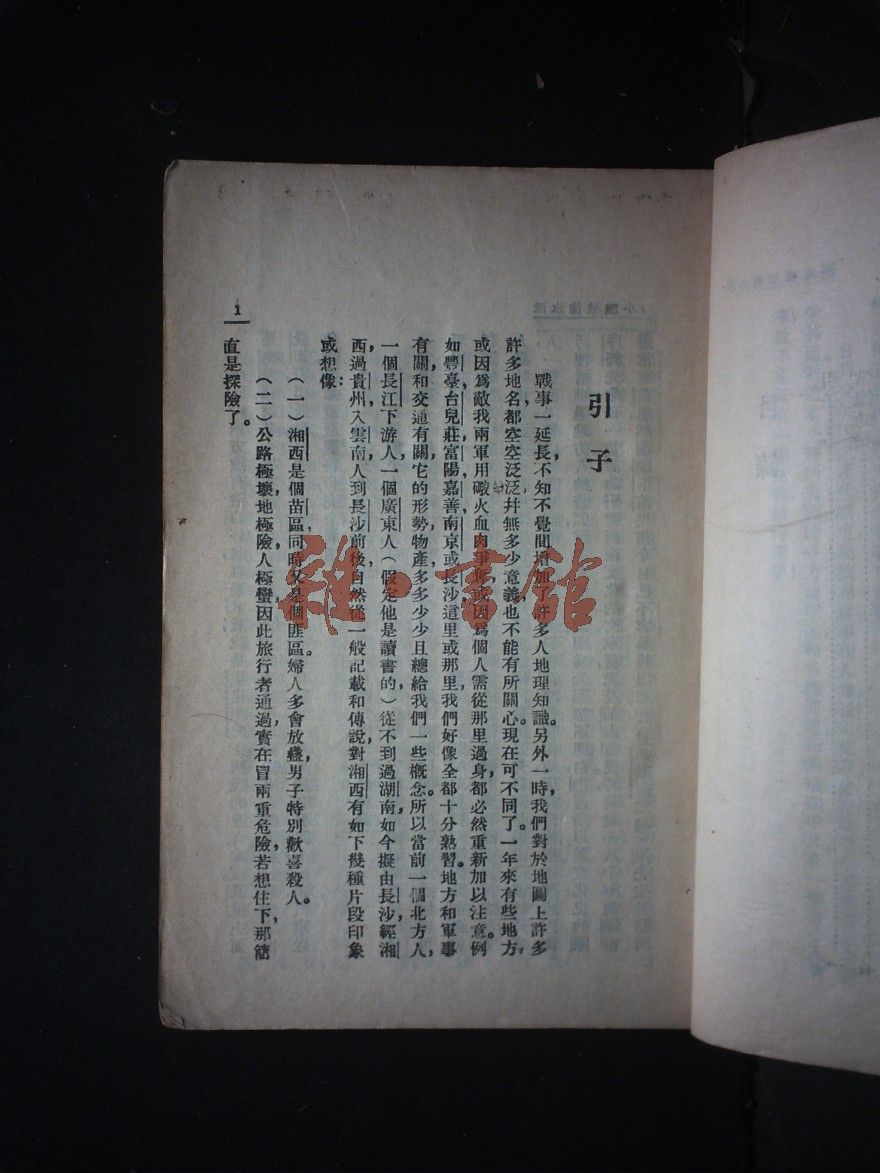 引子
戰事一延長,不知不覺間增加了許多人地理知識。另外一時,我們對於地圖上許多
許多地名都空空泛泛,幷無多少意義,也不能有所關心。現在可不同了。一年來有些地方,
或因爲敵我兩軍用礮火血肉爭奪,或因爲個人需從那里過身,都必然重新加以注意。例
如豐臺,台兒莊,富陽,嘉善,南京或長沙,這里或那里,我們好像全都十分熟習。地方和軍事
有關,和交通有關,它的形勢,物產,多多少少且總給我們一些槪念。所以當前一個北方人,
一個長江下游人,一個廣東人(假定他是讀書的),從不到過湖南,如今擬由長沙,經湘
西,過貴州,入雲南,人到長沙前後,自然從一般記載和傳說,對湘西有如下幾種片段印象
或想像:
(一)湘西是個苗區,同時又是個匪區。婦人多會放蠱,男子特別歡喜殺人。
(二)公路極壞,地極險,人極蠻,因此旅行者通過,實在冒兩重危險,若想住下,那簡
直是探險了。
1
雜·書館